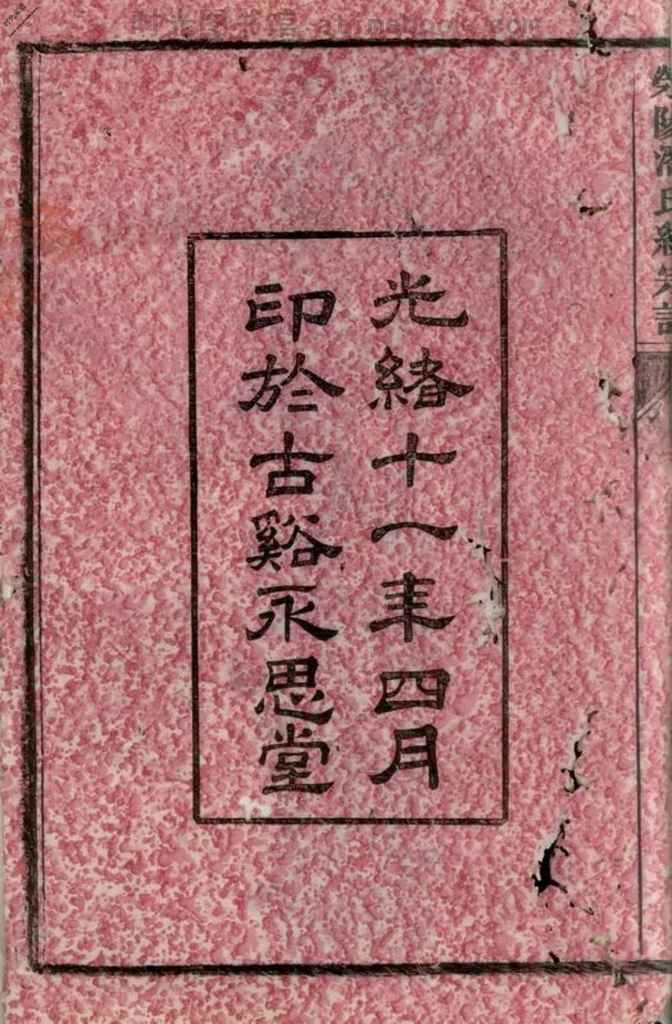 光緒十一年四月
印於古谿永思堂